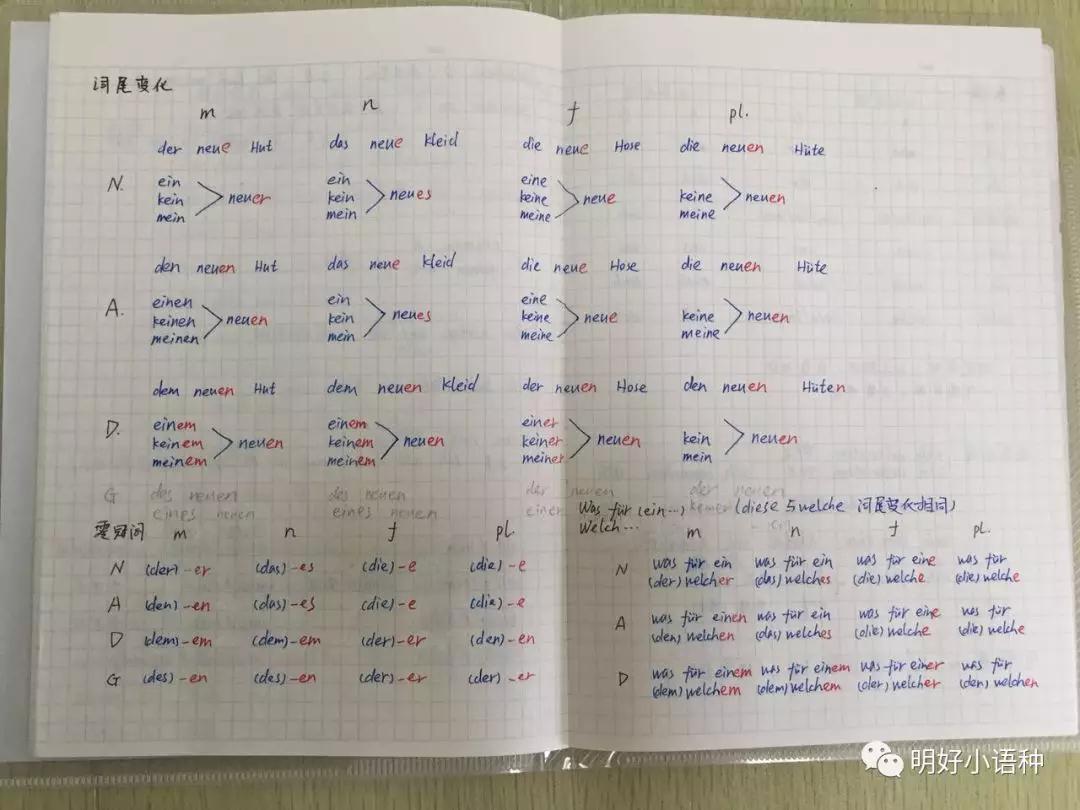 词尾变化
m n f pl.
der neue Hut das neue Kleid die neue Hose die neuen Hüte
N. ein kein mein neuer ein kein mein neues eine keine meine neue keine meine neuen
den neuen Hut das neue Kleid die neue Hose die neuen Hüte
A. einen keinen meinen neuen ein kein mein neues eine keine meine neue keine meine neuen
dem neuen Hut dem neuen Kleid der neuen Hose den neuen Hüten
D. einem keinem meinem neuen einem keinem meinem neuen einer keiner meiner neuen kein mein neuen
G des neuen des neuen der neuen der neuen
eines neuen eines neuen einer
零冠词 m n f pl.
N (der)-er (das)-es (die)-e (die)-e
A (den)-en (das)-es (die)-e (die)-e
D (dem)-em (dem)-em (der)-er (den)-en
G (des)-en (des)-en (der)-er (der)-er
Was für (ein...) (diese 与welche 词尾变化相同)
Welch...
m n f pl.
N was für ein was für ein was für eine was für
(der) welcher (das) welches (die) welche (die) welche
A was für einen was für ein was für eine was für
(den) welchen (das) welches (die) welche (die) welche
D was für einem was für einem was für einer was für
(dem) welchem (dem) welchem (der) welcher (den) welchen
明好小语种